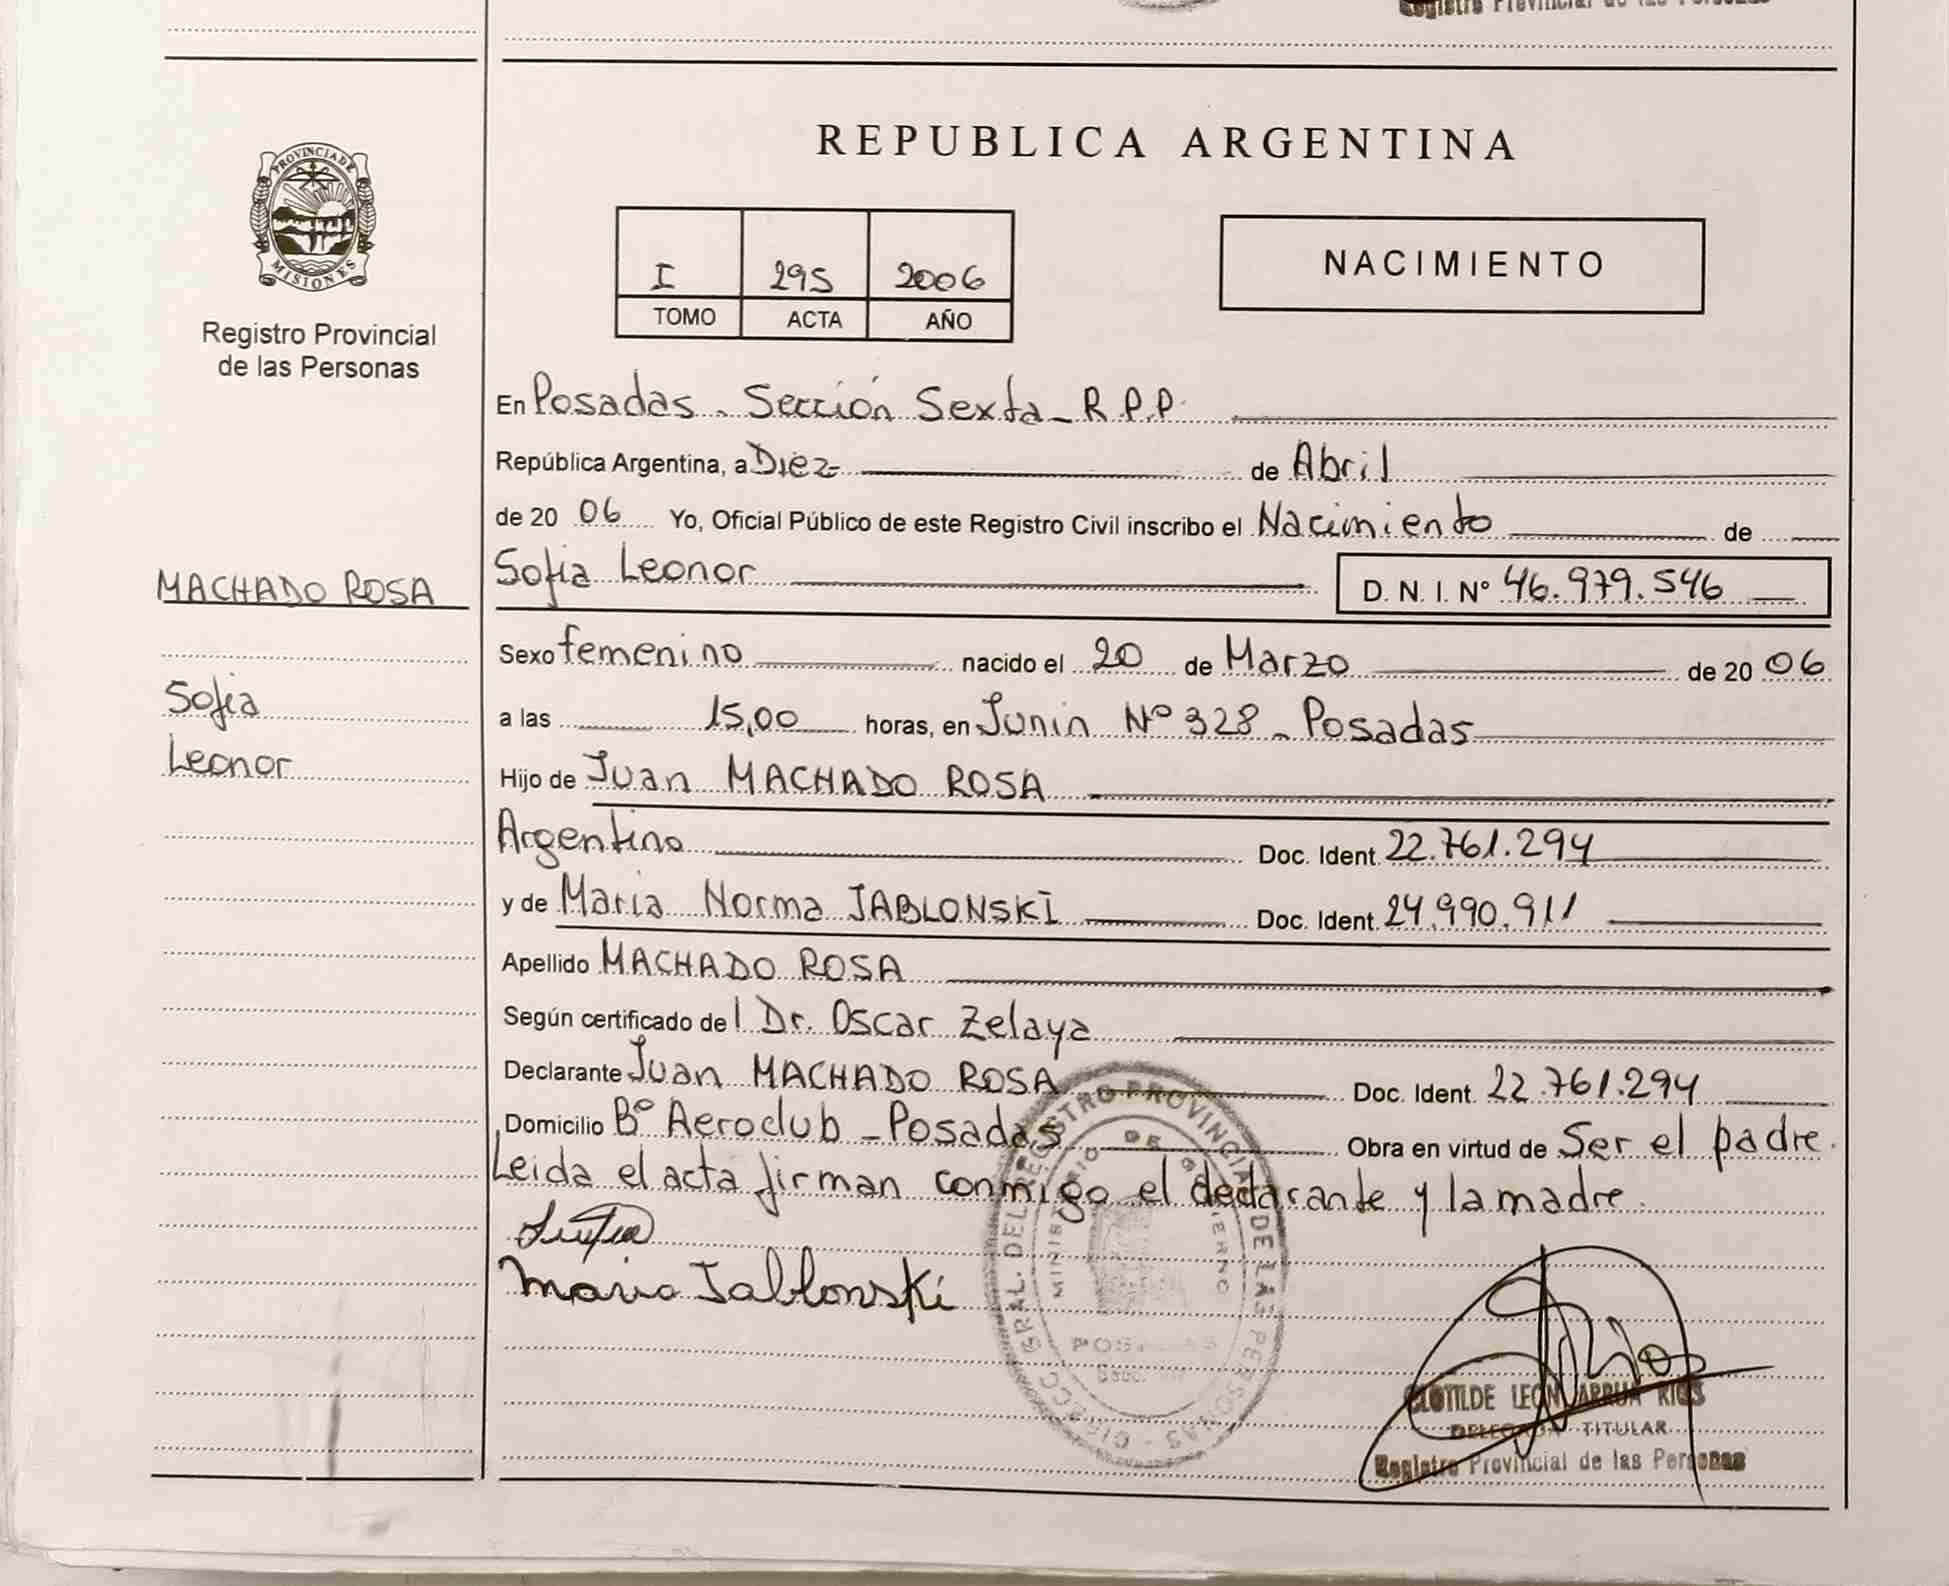 Registro Provincial de las Personas
REPUBLICA ARGENTINA
PROVINCIA DE
MISIONES
Registro Provincial
de las Personas
I 295 2006
TOMO ACTA AÑO
NACIMIENTO
En Posadas - Sección Sexta - R.P.P.
República Argentina, a Diez de Abril
de 20 06 Yo, Oficial Público de este Registro Civil inscribo el Nacimiento de
MACHADO ROSA
Sofia Leonor D. N. I. Nº 46.979.546
Sexo femenino nacido el 20 de Marzo de 20 06
Sofia
a las 15,00 horas, en Junin Nº 328 - Posadas
Leonor
Hijo de Juan MACHADO ROSA
Argentino Doc. Ident. 22.761.294
y de Maria Norma JABLONSKI Doc. Ident. 24.990.911
Apellido MACHADO ROSA
Según certificado del Dr. Oscar Zelaya
Declarante Juan MACHADO ROSA Doc. Ident. 22.761.294
Domicilio Bº Aeroclub - Posadas Obra en virtud de Ser el padre.
Leida el acta firman conmigo el declarante y la madre.
Maria Jablonski
GRAL. DEL REGISTRO PROVINCIAL DE LAS PERSONAS
MINISTERIO DE GOBIERNO
POSADAS
CLOTILDE LEON ARRUA RIOS
DELEGADA TITULAR
Registro Provincial de las Personas